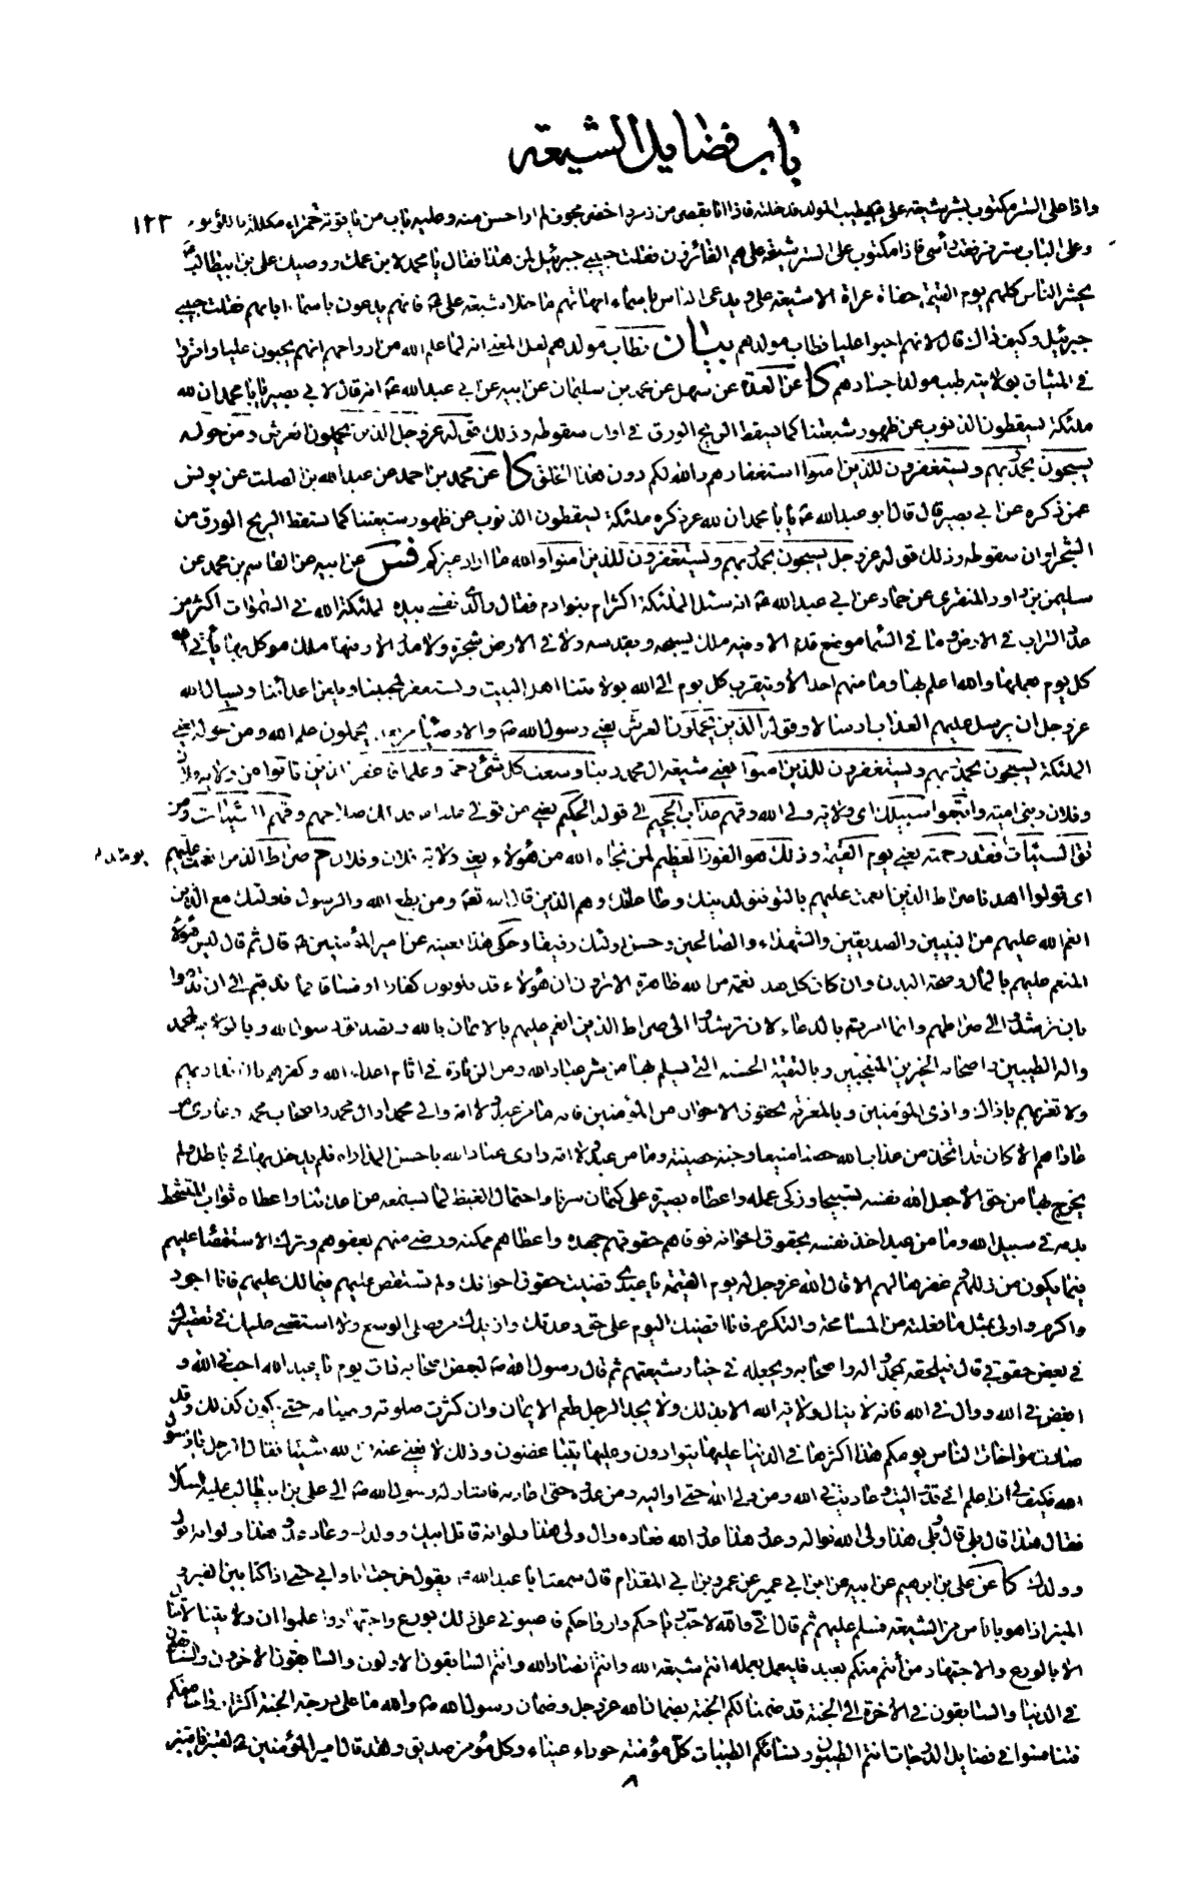 باب فضايل الشيعة
واذا على الستر مكتوب بشر شيعة على بطيب المولد فدخلته فاذا انا بقصر من زمرد اخضر مجوف لم ار احسن منه وعليه باب من ياقوتة حمراء مكللة باللؤلؤ ١٢٣
وعلى الباب ستر فرفعت رأسى فاذا مكتوب على الستر شيعة على هم الفائزون فقلت حبيبى جبرئيل لمن هذا فقال يا محمد لابن عمك ووصيك على بن ابيطالب
يحشر الناس كلهم يوم القيمة حفاة عراة الا شيعة على ويدعى الناس باسماء امهاتهم ما خلا شيعة على فانهم يدعون باسماء ابائهم فقلت حبيبى
جبرئيل وكيف ذاك قال لانهم احبوا عليا فطاب مولدهم بيان فطاب مولدهم لعل المعنى انه لما علم الله من ارواحهم انهم يحبون عليا واقروا
فى الميثاق بولايته طيب مولد اجسادهم كا عن العدة عن سهل عن محمد بن سليمان عن ابيه عن ابى عبدالله انه قال لابى بصير يا با محمد ان لله
ملئكة يسقطون الذنوب عن ظهور شيعتنا كما يسقط الريح الورق فى اوان سقوطه وذلك قوله عزوجل الذين يحملون العرش ومن حوله
يسبحون بحمد ربهم ويستغفرون للذين امنوا استغفارهم والله لكم دون هذا الخلق كا عن محمد بن احمد عن عبدالله بن الصلت عن يونس
عمن ذكره عن ابى بصير قال قال ابو عبدالله يا با محمد ان لله عز ذكره ملئكة يسقطون الذنوب عن ظهور شيعتنا كما تسقط الريح الورق من
الشجر اوان سقوطه وذلك قوله عزوجل يسبحون بحمد ربهم ويستغفرون للذين امنوا والله ما اراد غيركم فس عن ابيه عن القاسم بن محمد عن
سليمن بن داود المنقرى عن حماد عن ابى عبدالله انه سئل الملئكة اكثر ام بنوادم فقال والذى نفسى بيده لملئكة الله فى السموات اكثر من
عدد التراب فى الارض وما فى السما موضع قدم الا وفيه ملك يسبحه ويقدسه ولا فى الارض شجرة ولا مدر الا وفيها ملك موكل بها يأتى
كل يوم بعملها والله اعلم بها وما منهم احد الا ويتقرب كل يوم الى الله بولايتنا اهل البيت ويستغفر لمحبينا ويلعن اعدائنا ويسال الله
عزوجل ان يرسل عليهم العذاب ارسالا وقوله الذين يحملون العرش يعنى رسول الله والاوصيا يحملون علم الله ومن حوله يعنى
الملئكة يسبحون بحمد ربهم ويستغفرون للذين امنوا يعنى شيعة ال محمد ربنا وسعت كل شئ رحمة وعلما فاغفر للذين تابوا من ولاية
وفلان وبنى امية واتبعوا سبيلك اى ولاية ولى الله وقهم عذاب الجحيم الى قوله الحكيم يعنى من تولى عليا فذلك صلاحهم وقهم السيئات ومن
تق السيئات فقد رحمته يعنى يوم القيمة وذلك هو الفوز العظيم لمن نجاه الله من هؤلاء يعنى ولاية فلان وفلان م صراط الذين انعمت عليهم
اى قولوا اهدنا صراط الذين انعمت عليهم بالتوفيق لدينك وطاعتك وهم الذين قال الله ومن يطع الله والرسول فاولئك مع الذين
انعم الله عليهم من النبيين والصديقين والشهداء والصالحين وحسن اولئك رفيقا وحكى هذا بعينه عن امير المؤمنين قال ثم قال ليس هؤلاء
المنعم عليهم بالمال وصحة البدن وان كان كل هذا نعمة من الله ظاهرة الا ترون ان هؤلاء قد يكونون كفارا او فساقا فما ندبتم الى ان تدعوا
بان ترشدوا الى صراطهم وانما امرتم بالدعاء لان ترشدوا الى صراط الذين انعم عليهم بالايمان بالله وتصديق رسوله وبالولاية لمحمد
واله الطيبين واصحابه الخيرين المنتجبين وبالتقية الحسنة التى يسلم بها من شر عباد الله ومن الزيادة فى اثام اعداء الله وكفرهم بان تداريهم
ولا تغريهم باذاك واذى المؤمنين وبالمعرفة بحقوق الاخوان من المؤمنين فانه ما من عبد ولا امة والى محمدا وال محمد واصحاب محمد وعادى من
عاداهم الا كان قد اتخذ من عذاب الله حصنا منيعا وجنة حصينة وما من عبد ولا امة دارى عباد الله باحسن المداراه فلم يدخل بها فى باطل ولم
يخرج بها من حق الا جعل الله نفسه تسبيحا وزكى عمله واعطاه بصيرة على كتمان سرنا واحتمال الغيظ لما يستمعه من اعدائنا واعطاه ثواب المتشحط
بدمه فى سبيل الله وما من عبد اخذ نفسه بحقوق اخوانه فوفاهم حقوقهم جهده واعطاهم ممكنه ورضى منهم بعفوهم وترك الاستقصا عليهم
فيما يكون من زللهم غفرها لهم الا قال الله عزوجل له يوم القيمة يا عبدى قضيت حقوق اخوانك ولم تستقص عليهم فيما لك عليهم فانا اجود
واكرم واولى بمثل ما فعلته من المسامحة والتكرم فانا اقضيك اليوم على حق وعدتك وازيدك من فضلى الواسع ولا استقصى عليك فى تقصيرك
فى بعض حقوقى قال فيلحقه بمحمد واله واصحابه ويجعله فى خيار شيعتهم ثم قال رسول الله لبعض اصحابه ذات يوم يا عبد الله احب فى الله و
ابغض فى الله ووال فى الله فانه لا ينال ولاية الله الا بذلك ولا يجد الرجل طعم الايمان وان كثرت صلوته وصيامه حتى يكون كذلك وقد
صارت مواخاة الناس يومكم هذا اكثرها فى الدنيا عليها يتوادون وعليها يتباغضون وذلك لا يغنى عنهم من الله شيئا فقال الرجل يا رسول
الله فكيف لى ان اعلم انى قد واليت وعاديت فى الله ومن ولى الله حتى اواليه ومن عدوه حتى اعاديه فاشار له رسول الله الى على بن ابيطالب عليه السلام
فقال اترى هذا قال بلى قال ولى هذا ولى الله فواله وعدو هذا عدو الله فعاده وال ولى هذا ولو انه قاتل ابيك وولدك وعاد عدو هذا ولو انه ابوك
وولدك كا عن على بن ابرهيم عن ابيه عن ابن ابى عمير عن عمرو بن ابى المقدام قال سمعت ابا عبدالله يقول خرجت انا وابى حتى اذا كنا بين القبر و
المنبر اذا هو باناس من الشيعة فسلم عليهم ثم قال انى والله لاحب رياحكم وارواحكم فاعينونى على ذلك بورع واجتهاد واعلموا ان ولايتنا لا تنال
الا بالورع والاجتهاد من أتم منكم بعبد فليعمل بعمله انتم شيعة الله وانتم انصار الله وانتم السابقون الاولون والسابقون الاخرون والسابقون
فى الدنيا والسابقون فى الاخرة الى الجنة قد ضمنا لكم الجنة بضمان الله عزوجل وضمان رسول الله والله ما على درجة الجنة اكثر ارواحا منكم
فتنافسوا فى فضايل الدرجات انتم الطيبون ونسائكم الطيبات كل مؤمنة حوراء عيناء وكل مؤمن صديق ولقد قال امير المؤمنين لقنبر يا قنبر
٨